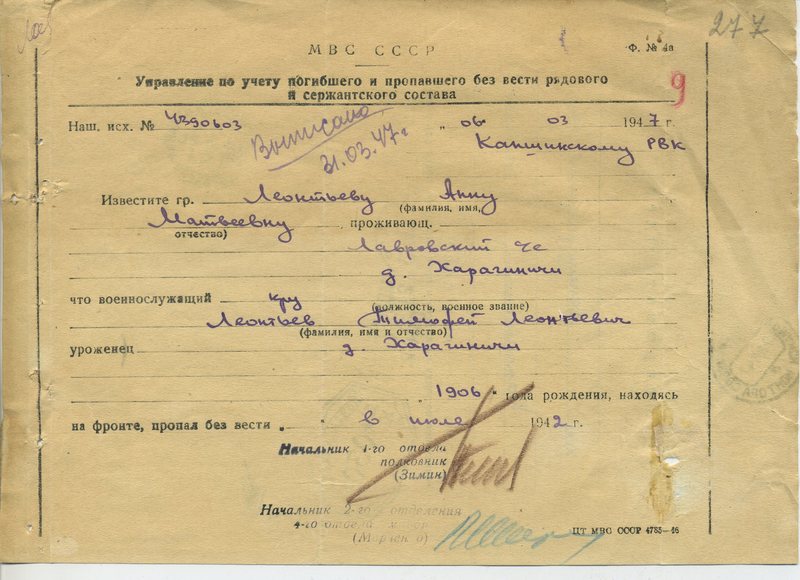 277
МВС СССР
Ф. № 4а
Управление по учету погибшего и пропавшего без вести рядового
и сержантского состава
9
Наш. исх. № 4390603 „06" 03 1947 г.
Выписано
31.03.47 г
Капшинскому РВК
Известите гр. Леонтьеву Анну
(фамилия, имя,
Матвеевну, проживающ.
отчество)
Лавровский с/с
д. Харагиничи
что военнослужащий кр
(должность, военное звание)
Леонтьев Тимофей Леонтьевич
(фамилия, имя и отчество)
уроженец д Харагиничи
1906 года рождения, находясь
на фронте, пропал без вести в июле 1942 г.
Начальник 1-го отдела
полковник
(Зимин)
Начальник 2-го отделения
4-го отдела майор
ЦТ МВС СССР 4785-46